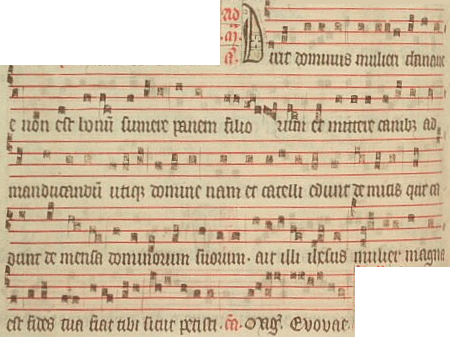 ad
Dixit dominus mulieri chanane
e non est bonū sumere panem filio rum et mittere canibꝫ ad
manducandū utiqꝫ domine nam et catelli edunt de micis que ca
dunt de mensa dominorum suorum . ait illi ihesus mulier magna
est fides tua fiat tibi sicut petisti . Evovae